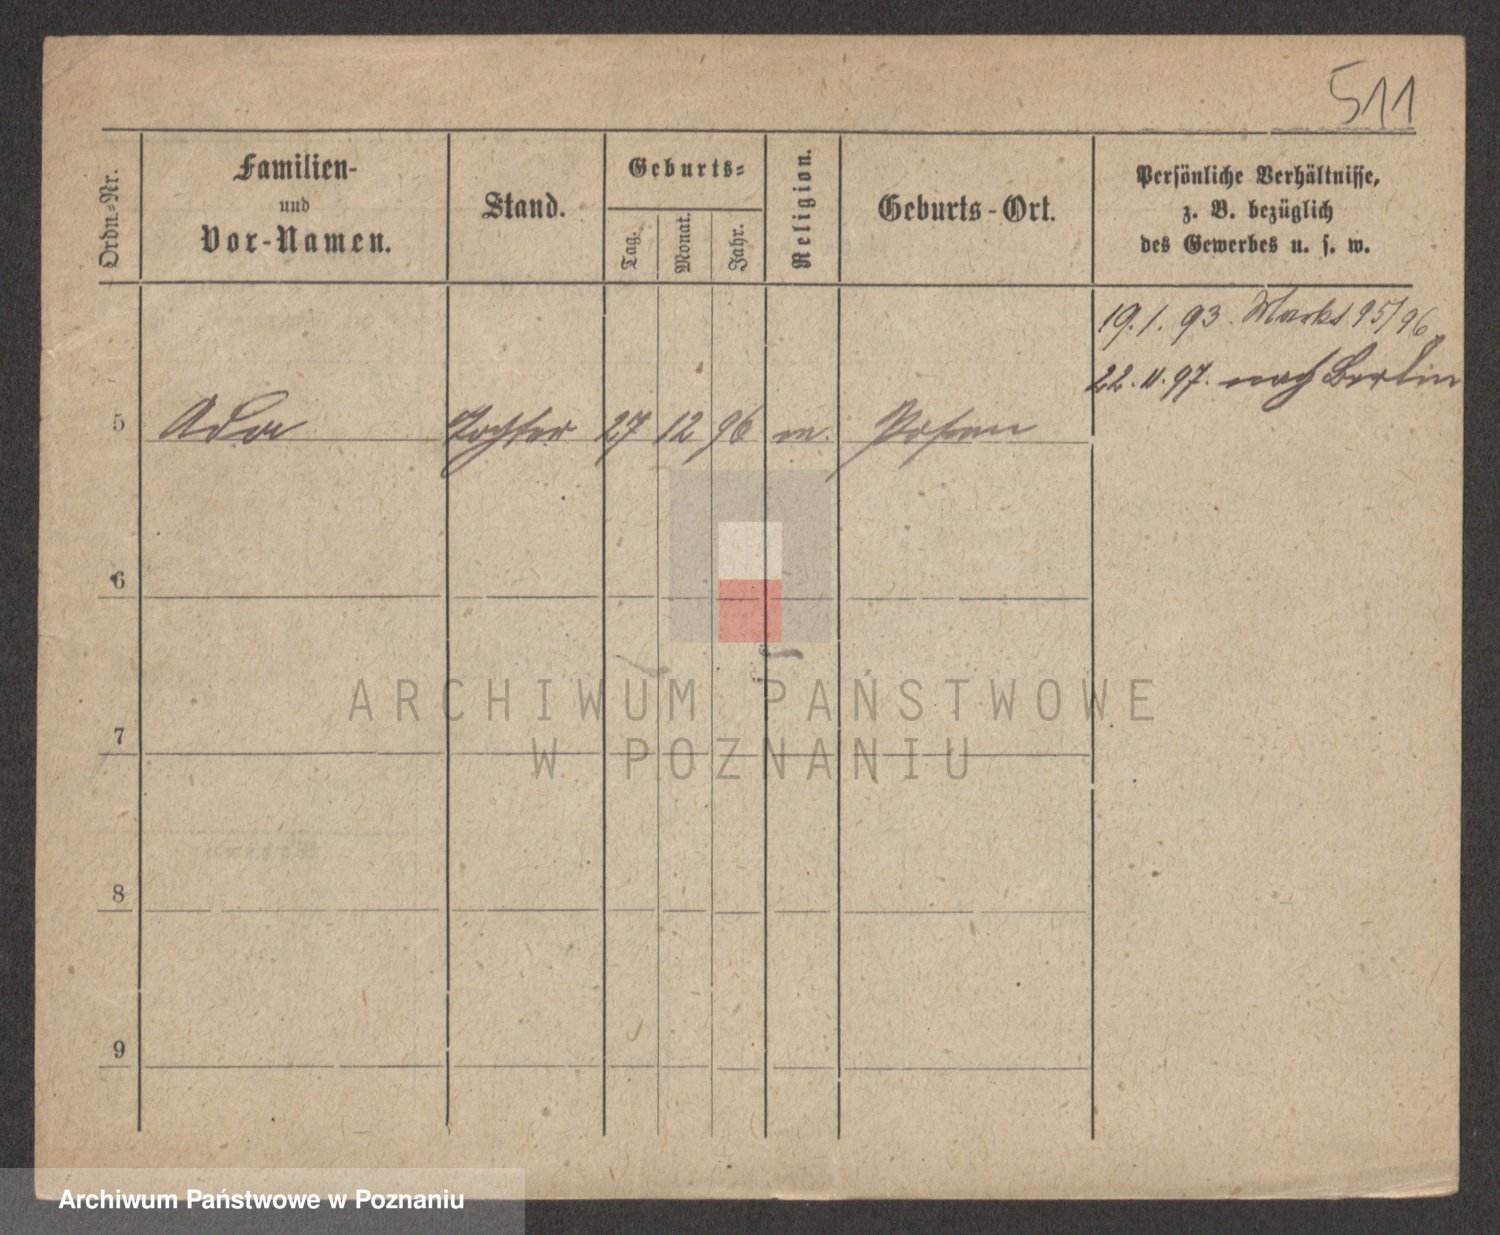 511
Ordn.-Nr.
Familien-
und
Vor-Namen.
Stand.
Geburts-
Tag.
Monat.
Jahr.
Religion.
Geburts-Ort.
Persönliche Verhältnisse,
z. B. bezüglich
des Gewerbes u. s. w.
19. 1. 93. 95/96
22. 11. 97. nach Berlin
5 Ada Tochter 27 12 96 m. Posen
6
7
8
9
ARCHIWUM PAŃSTWOWE
W POZNANIU
Archiwum Państwowe w Poznaniu